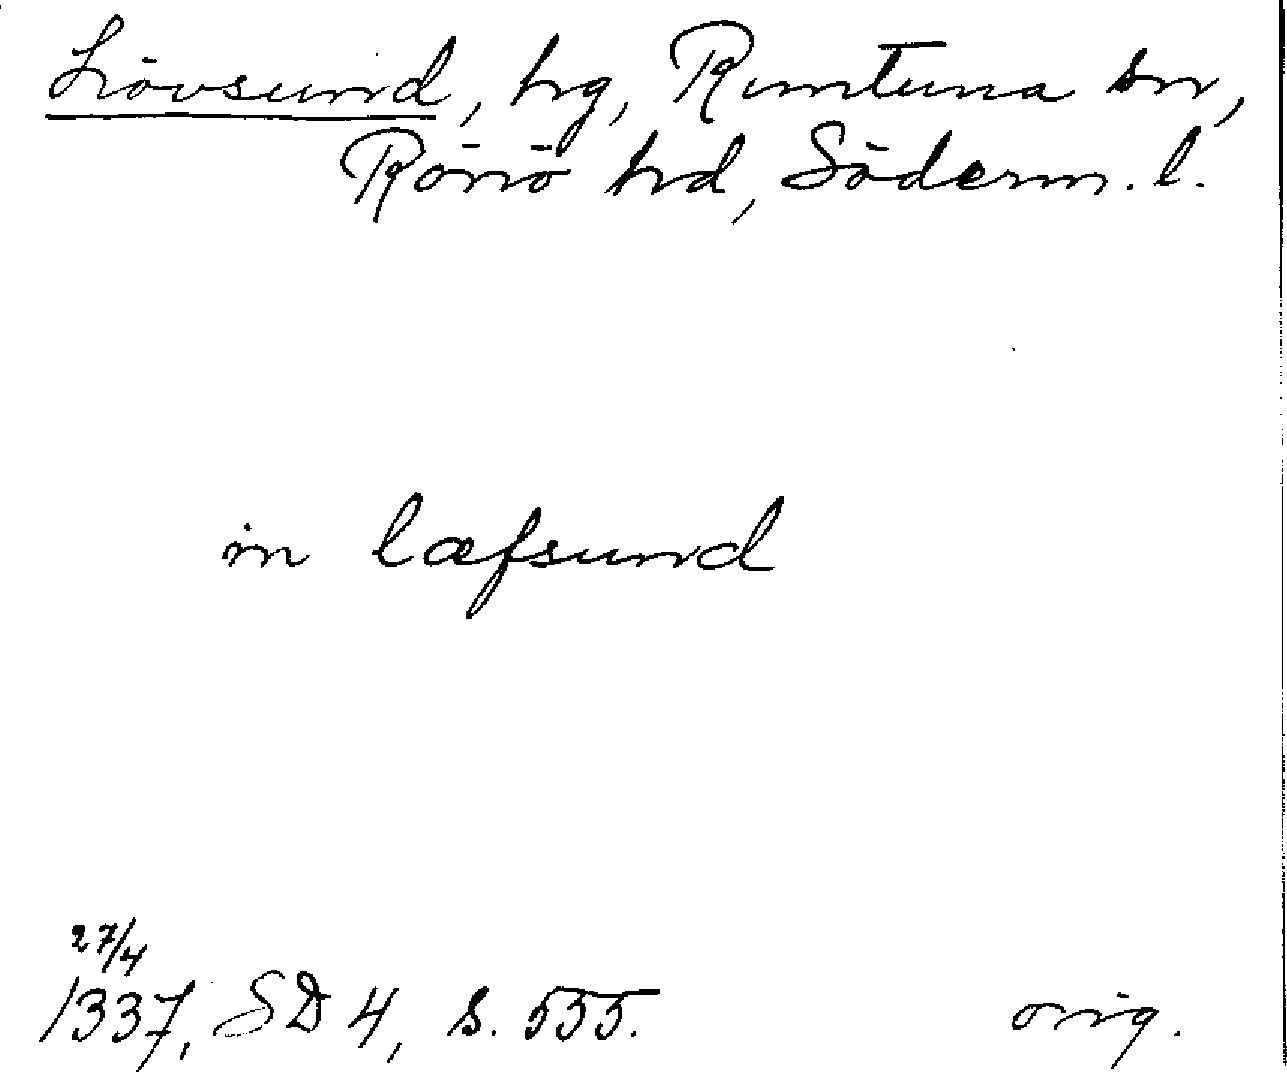 Lövsund, hg, Runtuna sn,
Rönö hd, Söderm. l.
in læfsund
27/4
1337, SD 4, s. 555. orig.